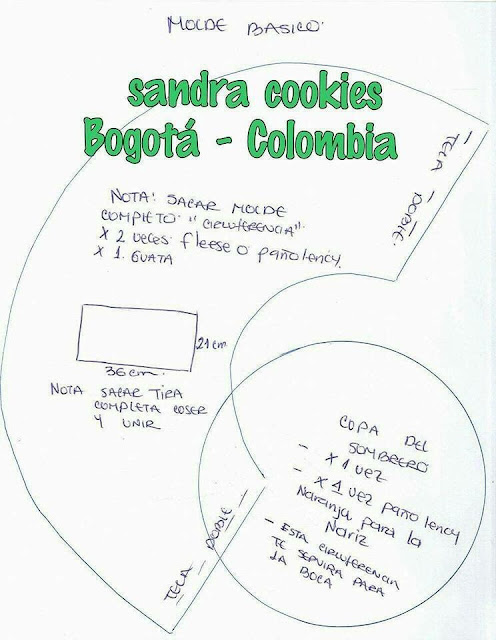 MOLDE BASICO.
sandra cookies
Bogotá - Colombia
TELA DOBLE
NOTA: SACAR MOLDE
COMPLETO "CIRCUFERENCIA"
X 2 VECES fleese o pañolency.
X 1. GUATA
21 cm
36 cm
NOTA SACAR TIRA
COMPLETA COSER
Y UNIR
COPA DEL
SOMBRERO
- X 1 VEZ
- X 1 VEZ pañolency
Naranja para la
Nariz
- ESTA CIRCUFERENCIA
TE SERVIRA PARA
LA BOCA
TELA DOBLE